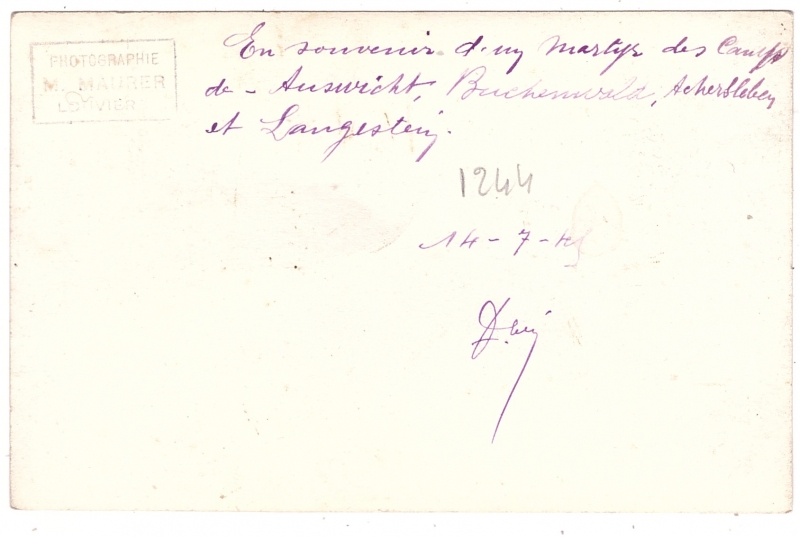 PHOTOGRAPHIE
M. MAURER
En souvenir d'un Martyr des Camps
de - Auswicht, Buchenwald, Achersleben
et Langestein.
1244
14-7-